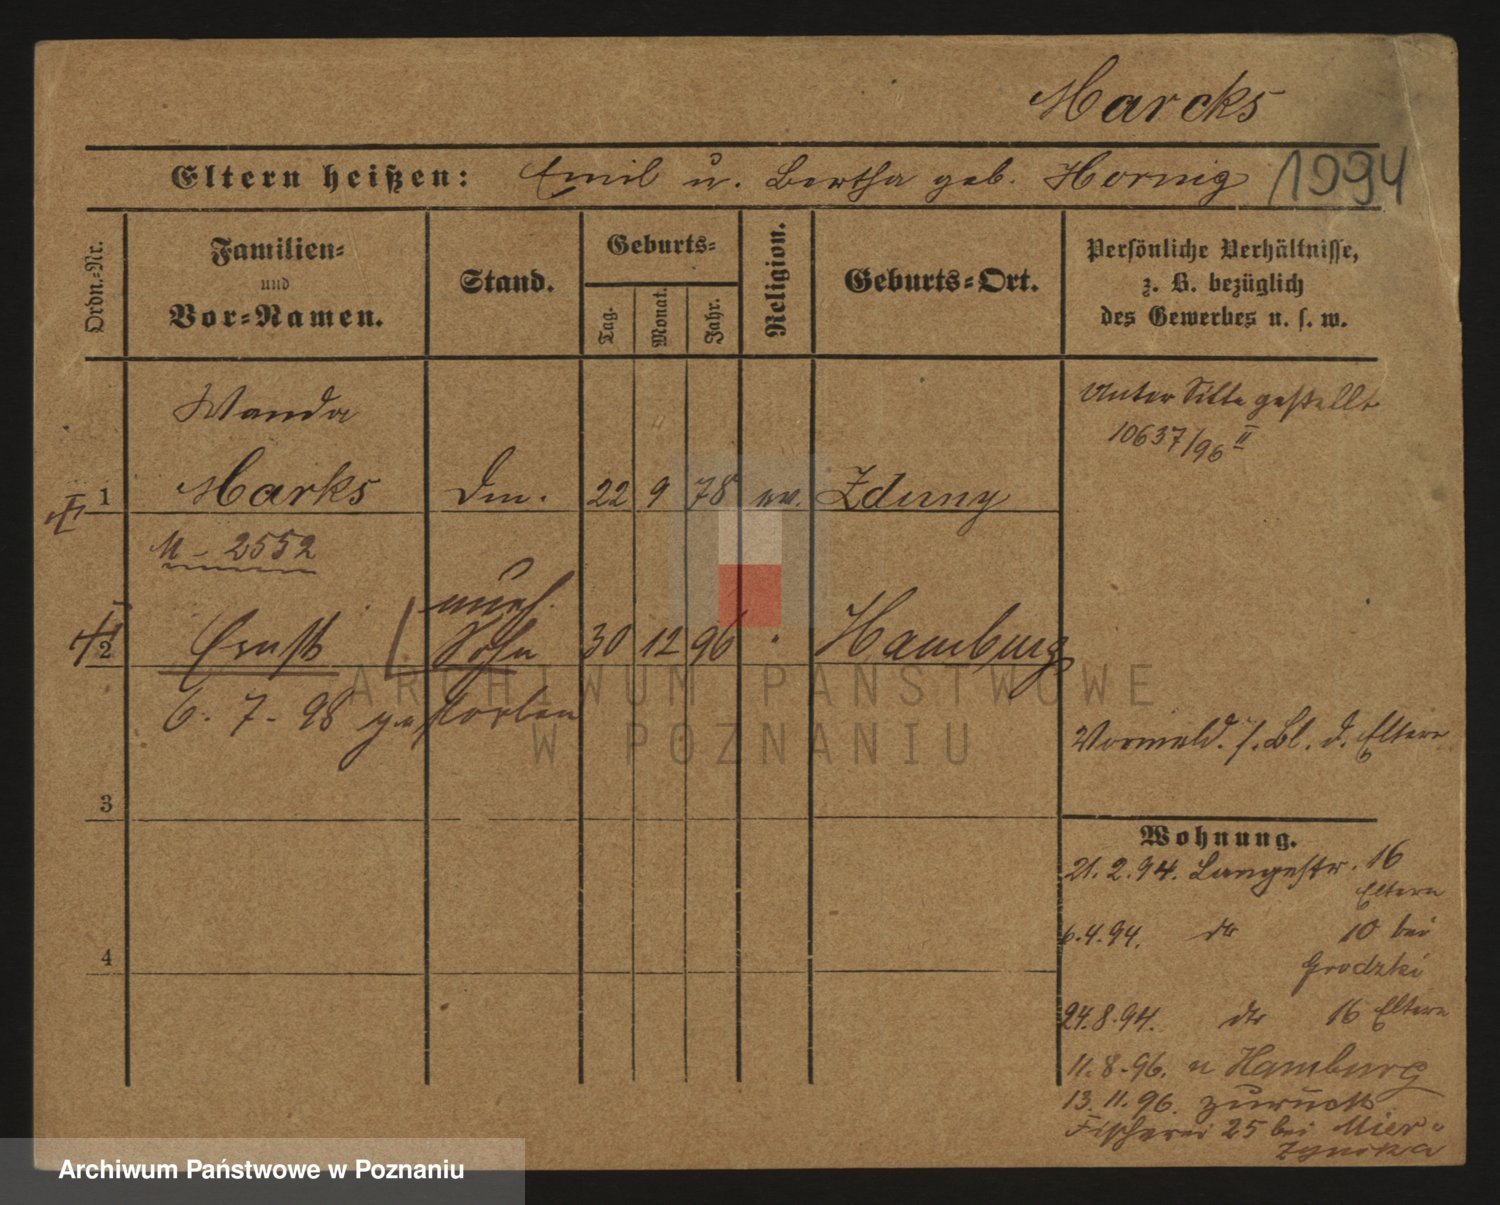 Marcks
Eltern heißen: Emil u. Bertha geb. Hornig 1994
Ordn.-Nr.
Familien-
und
Vor-Namen.
Stand.
Geburts-
Tag.
Monat.
Jahr.
Religion.
Geburts-Ort.
Persönliche Verhältnisse,
z. B. bezüglich
des Gewerbes u. s. w.
Wanda
Unter Sitte gestellt
10637/96 II
1 Marks 22 9 78 ev. Zduny
2552
uneh.
2 Ernst Sohn 30 12 96 " Hamburg
6. 7. 98 gestorben
ARCHIWUM PAŃSTWOWE
W POZNANIU
Vormeld. s. Bl. d. Eltern
3
Wohnung.
21. 2. 94. Langestr. 16
Eltern
6. 4. 94. dto 10 bei
Grodzki
4
24. 8. 94. dto 16 Eltern
11. 8. 96. n Hamburg
13. 11. 96. zurück
Fischerei 25 bei Mier-
zynska
Archiwum Państwowe w Poznaniu